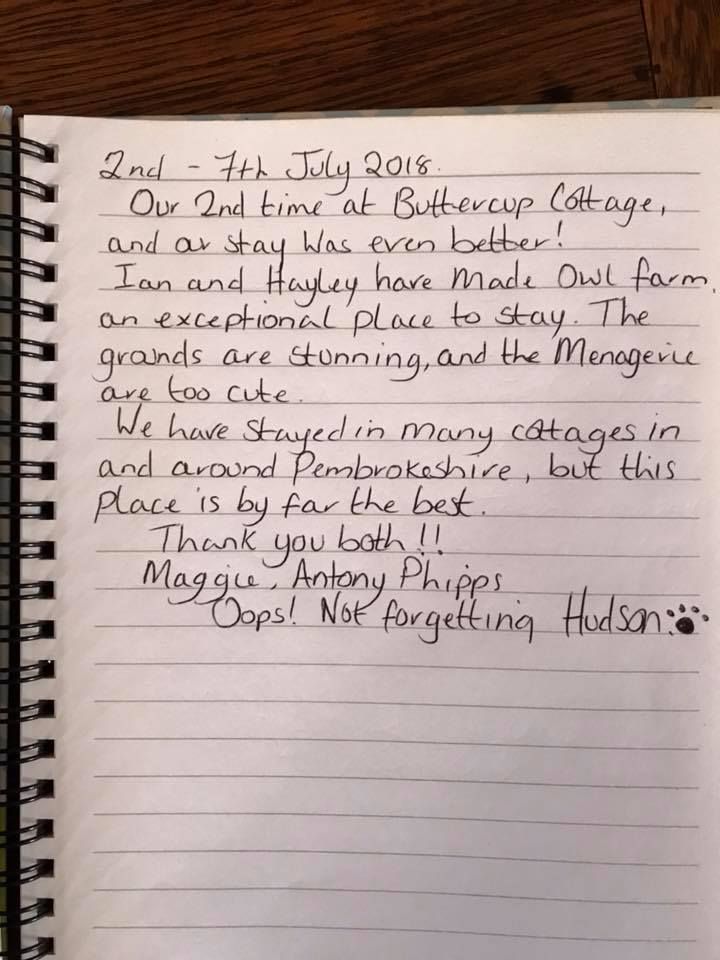 2nd - 7th July 2018.
Our 2nd time at Buttercup Cottage,
and our stay was even better!
Ian and Hayley have Made Owl farm,
an exceptional place to stay. The
grounds are stunning, and the Menagerie
are too cute.
We have stayed in many cottages in
and around Pembrokeshire, but this
place is by far the best.
Thank you both!!
Maggie, Antony Phipps
Oops! Not forgetting Hudson